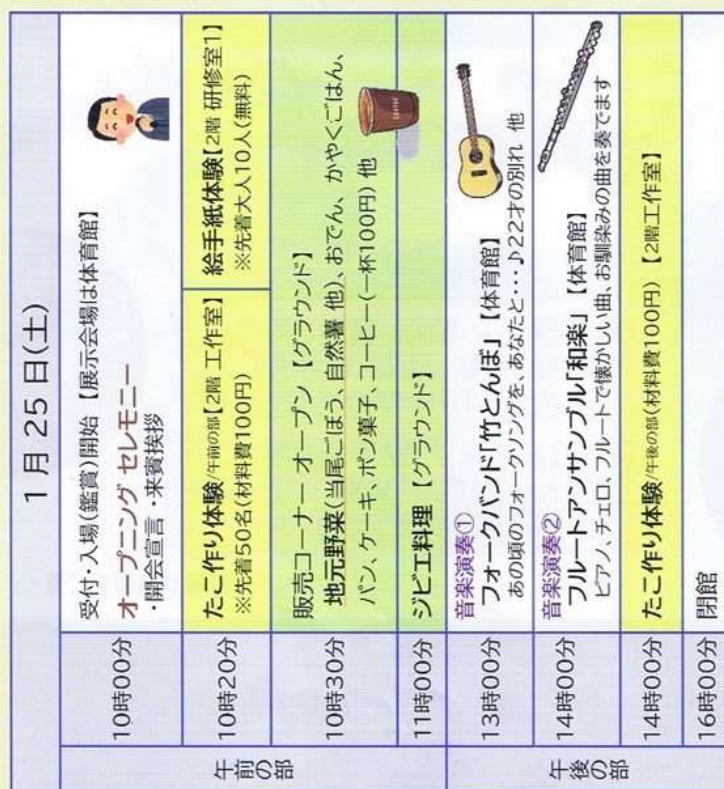 1月25日(土)
午前の部
10時00分
受付・入場(鑑賞)開始 【展示会場は体育館】
オープニング セレモニー
・開会宣言・来賓挨拶
10時20分
たこ作り体験/午前の部【2階 工作室】
※先着50名(材料費100円)
絵手紙体験【2階 研修室1】
※先着大人10人(無料)
10時30分
販売コーナー オープン 【グラウンド】
地元野菜(当尾ごぼう、自然薯 他)、おでん、かやくごはん、
パン、ケーキ、ポン菓子、コーヒー(一杯100円) 他
COFFEE
11時00分
ジビエ料理 【グラウンド】
午後の部
13時00分
音楽演奏①
フォークバンド「竹とんぼ」 【体育館】
あの頃のフォークソングを、あなたと・・・♪22才の別れ 他
14時00分
音楽演奏②
フルートアンサンブル「和楽」 【体育館】
ピアノ、チェロ、フルートで懐かしい曲、お馴染みの曲を奏でます
14時00分
たこ作り体験/午後の部(材料費100円) 【2階工作室】
16時00分
閉館